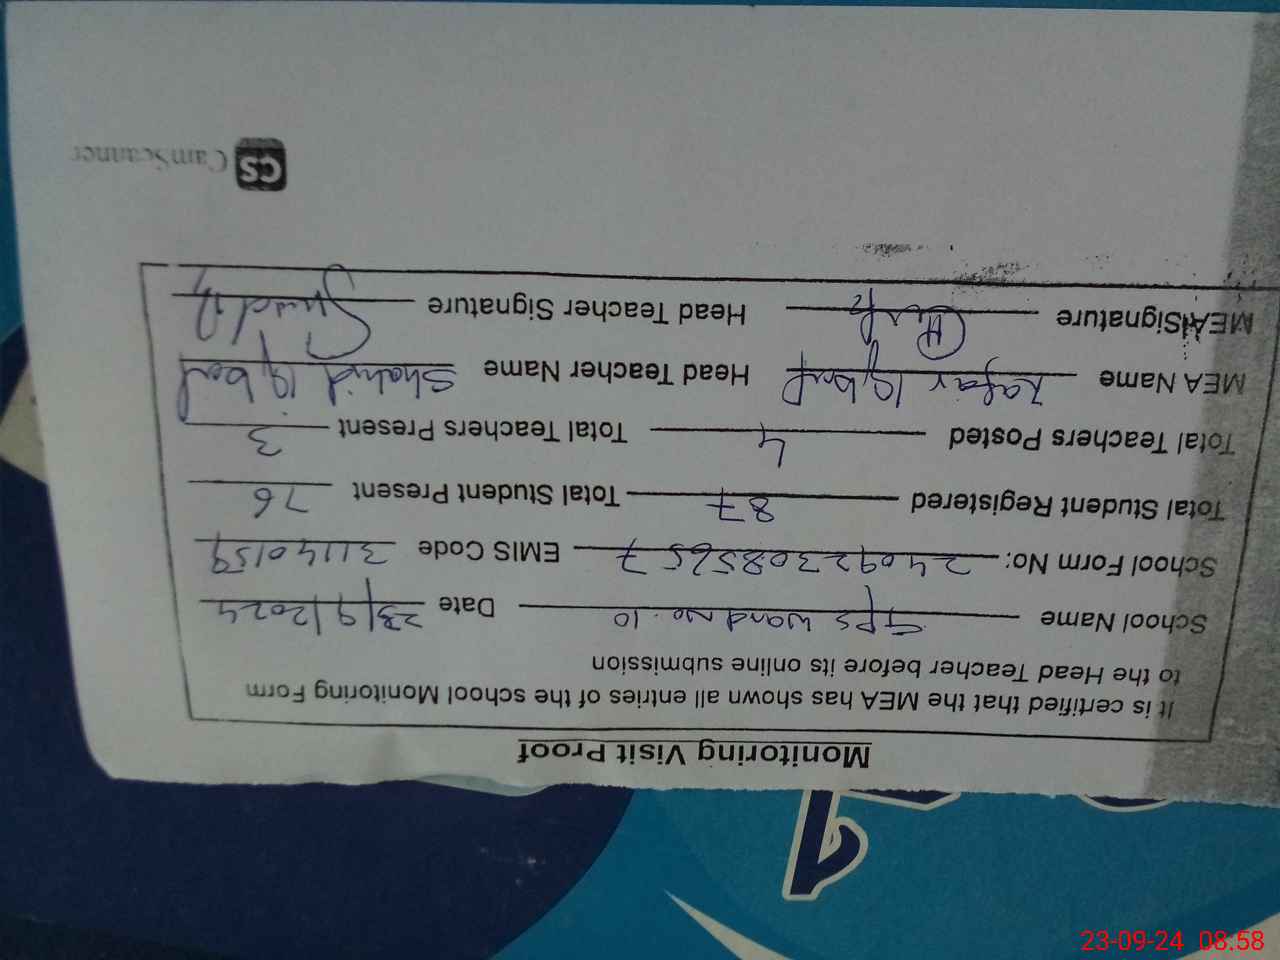 Monitoring Visit Proof
It is certified that the MEA has shown all entries of the school Monitoring Form
to the Head Teacher before its online submission
School Name GPS ward no. 10 Date 23/9/2024
School Form No: 240923085657 EMIS Code 31140159
Total Student Registered 87 Total Student Present 76
Total Teachers Posted 4 Total Teachers Present 3
MEA Name Zafar Iqbal Head Teacher Name Shahid Iqbal
MEA Signature Head Teacher Signature
CS CamScanner
23-09-24 08:58